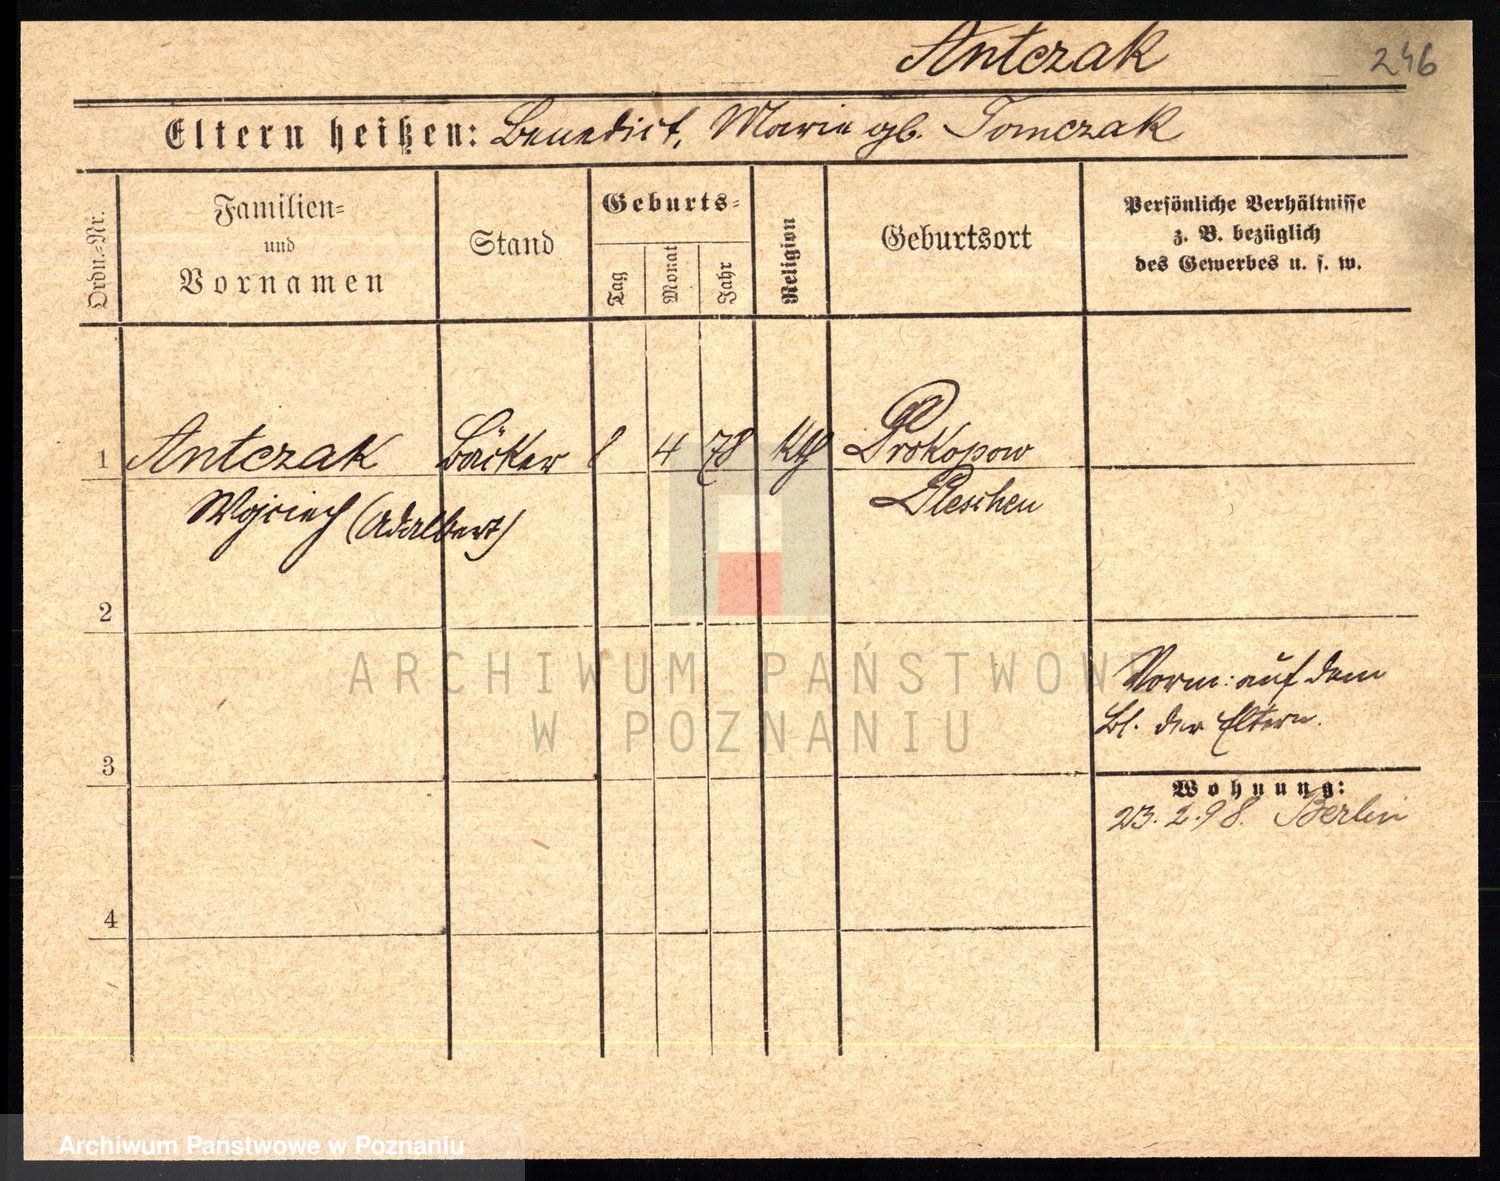 Antczak
246
Eltern heißen: Benedict, Marie gb. Tomczak
Ordn.-Nr.
Familien- und Vornamen
Stand
Geburts-
Tag
Monat
Jahr
Religion
Geburtsort
Persönliche Verhältnisse
z. B. bezüglich
des Gewerbes u. s. w.
1 Antczak Bäcker 8 4 78 kth Prokopow
Wojciech (Adalbert) Pleschen
2
3
4
Vorm: auf dem
Bl. der Eltern.
Wohnung:
23. 2. 98. Berlin
ARCHIWUM PAŃSTWOWE
W POZNANIU
Archiwum Państwowe w Poznaniu